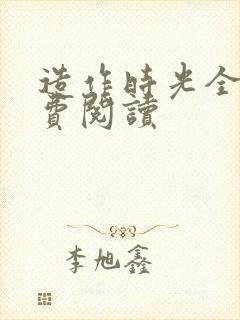 造作時光全
費閱讀
李旭鑫